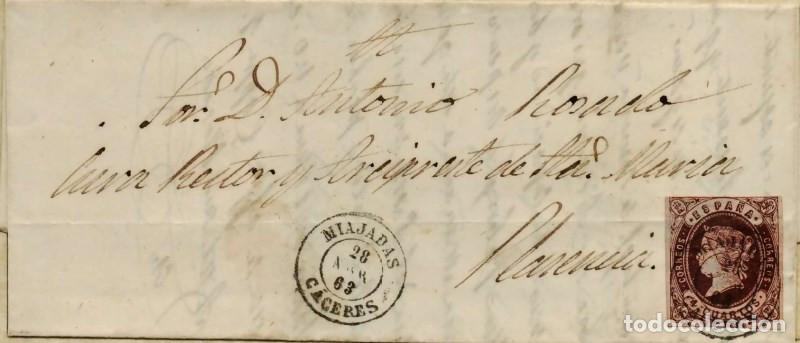 Sor. D. Antonio Rosado
Cura Rector y Arcipreste de Sta. Maria
Plasencia.
MIAJADAS
28
ABR
63
CACERES
ESPAÑA
CORREOS
4 CUARTOS
todocoleccion.net